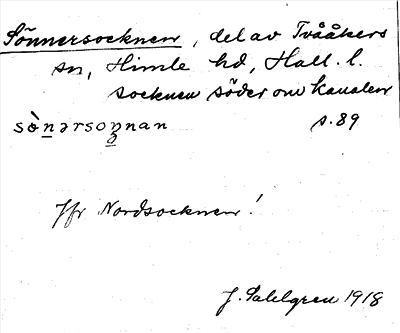 Sönnersocknen, del av Tvååkers
sn, Himle hd, Hall. l.
socknen söder om kanalen
sònərsoŋnan s. 89
Jfr Nordsocknen!
J. Sahlgren 1918